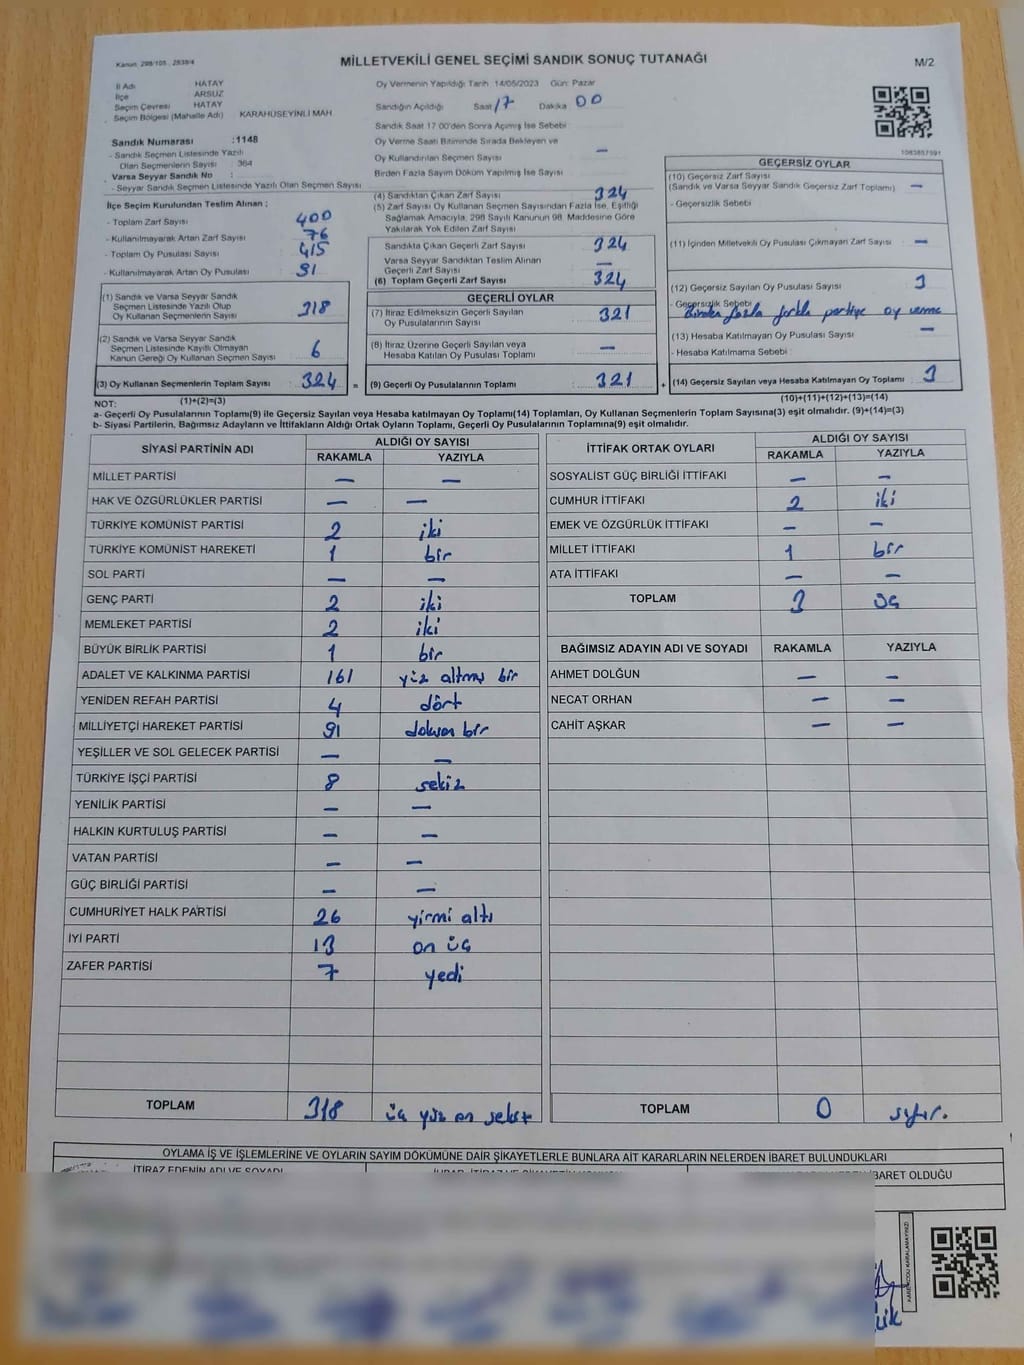 Kanun: 298/105 , 2839/4
MİLLETVEKİLİ GENEL SEÇİMİ SANDIK SONUÇ TUTANAĞI
M/2
İl Adı HATAY
İlçe ARSUZ
Seçim Çevresi HATAY
Seçim Bölgesi (Mahalle Adı) KARAHÜSEYİNLİ MAH.
Sandık Numarası :1148
- Sandık Seçmen Listesinde Yazılı
Olan Seçmenlerin Sayısı : 364
Varsa Seyyar Sandık No :
- Seyyar Sandık Seçmen Listesinde Yazılı Olan Seçmen Sayısı
İlçe Seçim Kurulundan Teslim Alınan ;
- Toplam Zarf Sayısı 400
- Kullanılmayarak Artan Zarf Sayısı 76
- Toplam Oy Pusulası Sayısı 415
- Kullanılmayarak Artan Oy Pusulası 91
(1) Sandık ve Varsa Seyyar Sandık
Seçmen Listesinde Yazılı Olup
Oy Kullanan Seçmenlerin Sayısı 318
(2) Sandık ve Varsa Seyyar Sandık
Seçmen Listesinde Kayıtlı Olmayan
Kanun Gereği Oy Kullanan Seçmen Sayısı 6
(3) Oy Kullanan Seçmenlerin Toplam Sayısı 324 =
Oy Vermenin Yapıldığı Tarih 14/05/2023 Gün: Pazar
Sandığın Açıldığı Saat 17 Dakika 00
Sandık Saat 17.00'den Sonra Açılmış İse Sebebi
Oy Verme Saati Bitiminde Sırada Bekleyen ve
Oy Kullandırılan Seçmen Sayısı —
Birden Fazla Sayım Döküm Yapılmış İse Sayısı
(4) Sandıktan Çıkan Zarf Sayısı 324
(5) Zarf Sayısı Oy Kullanan Seçmen Sayısından Fazla İse, Eşitliği
Sağlamak Amacıyla, 298 Sayılı Kanunun 98. Maddesine Göre
Yakılarak Yok Edilen Zarf Sayısı
Sandıkta Çıkan Geçerli Zarf Sayısı 324
Varsa Seyyar Sandıktan Teslim Alınan
Geçerli Zarf Sayısı —
(6) Toplam Geçerli Zarf Sayısı 324
GEÇERLİ OYLAR
(7) İtiraz Edilmeksizin Geçerli Sayılan
Oy Pusulalarının Sayısı 321
(8) İtiraz Üzerine Geçerli Sayılan veya
Hesaba Katılan Oy Pusulası Toplamı —
(9) Geçerli Oy Pusulalarının Toplamı 321 +
1083857591
GEÇERSİZ OYLAR
(10) Geçersiz Zarf Sayısı
(Sandık ve Varsa Seyyar Sandık Geçersiz Zarf Toplamı) —
- Geçersizlik Sebebi
(11) İçinden Milletvekili Oy Pusulası Çıkmayan Zarf Sayısı —
(12) Geçersiz Sayılan Oy Pusulası Sayısı 3
- Geçersizlik Sebebi
Birden fazla farklı partiye oy verme
(13) Hesaba Katılmayan Oy Pusulası Sayısı —
- Hesaba Katılmama Sebebi :
(14) Geçersiz Sayılan veya Hesaba Katılmayan Oy Toplamı 3
NOT: (1)+(2)=(3)
(10)+(11)+(12)+(13)=(14)
a- Geçerli Oy Pusulalarının Toplamı(9) ile Geçersiz Sayılan veya Hesaba katılmayan Oy Toplamı(14) Toplamları, Oy Kullanan Seçmenlerin Toplam Sayısına(3) eşit olmalıdır. (9)+(14)=(3)
b- Siyasi Partilerin, Bağımsız Adayların ve İttifakların Aldığı Ortak Oyların Toplamı, Geçerli Oy Pusulalarının Toplamına(9) eşit olmalıdır.
SİYASİ PARTİNİN ADI ALDIĞI OY SAYISI
RAKAMLA YAZIYLA
MİLLET PARTİSİ — —
HAK VE ÖZGÜRLÜKLER PARTİSİ — —
TÜRKİYE KOMÜNİST PARTİSİ 2 iki
TÜRKİYE KOMÜNİST HAREKETİ 1 bir
SOL PARTİ — —
GENÇ PARTİ 2 iki
MEMLEKET PARTİSİ 2 iki
BÜYÜK BİRLİK PARTİSİ 1 bir
ADALET VE KALKINMA PARTİSİ 161 yüz altmış bir
YENİDEN REFAH PARTİSİ 4 dört
MİLLİYETÇİ HAREKET PARTİSİ 91 doksan bir
YEŞİLLER VE SOL GELECEK PARTİSİ — —
TÜRKİYE İŞÇİ PARTİSİ 8 sekiz
YENİLİK PARTİSİ — —
HALKIN KURTULUŞ PARTİSİ — —
VATAN PARTİSİ — —
GÜÇ BİRLİĞİ PARTİSİ — —
CUMHURİYET HALK PARTİSİ 26 yirmi altı
İYİ PARTİ 13 on üç
ZAFER PARTİSİ 7 yedi
TOPLAM 318 üç yüz on sekiz
İTTİFAK ORTAK OYLARI ALDIĞI OY SAYISI
RAKAMLA YAZIYLA
SOSYALİST GÜÇ BİRLİĞİ İTTİFAKI — —
CUMHUR İTTİFAKI 2 iki
EMEK VE ÖZGÜRLÜK İTTİFAKI — —
MİLLET İTTİFAKI 1 bir
ATA İTTİFAKI — —
TOPLAM 3 üç
BAĞIMSIZ ADAYIN ADI VE SOYADI RAKAMLA YAZIYLA
AHMET DOLĞUN — —
NECAT ORHAN — —
CAHİT AŞKAR — —
TOPLAM 0 sıfır.
OYLAMA İŞ VE İŞLEMLERİNE VE OYLARIN SAYIM DÖKÜMÜNE DAİR ŞİKAYETLERLE BUNLARA AİT KARARLARIN NELERDEN İBARET BULUNDUKLARI
İTİRAZ EDENİN ADI VE SOYADI
İBARET OLDUĞU
KAREKODU KARALAMAYINIZ!